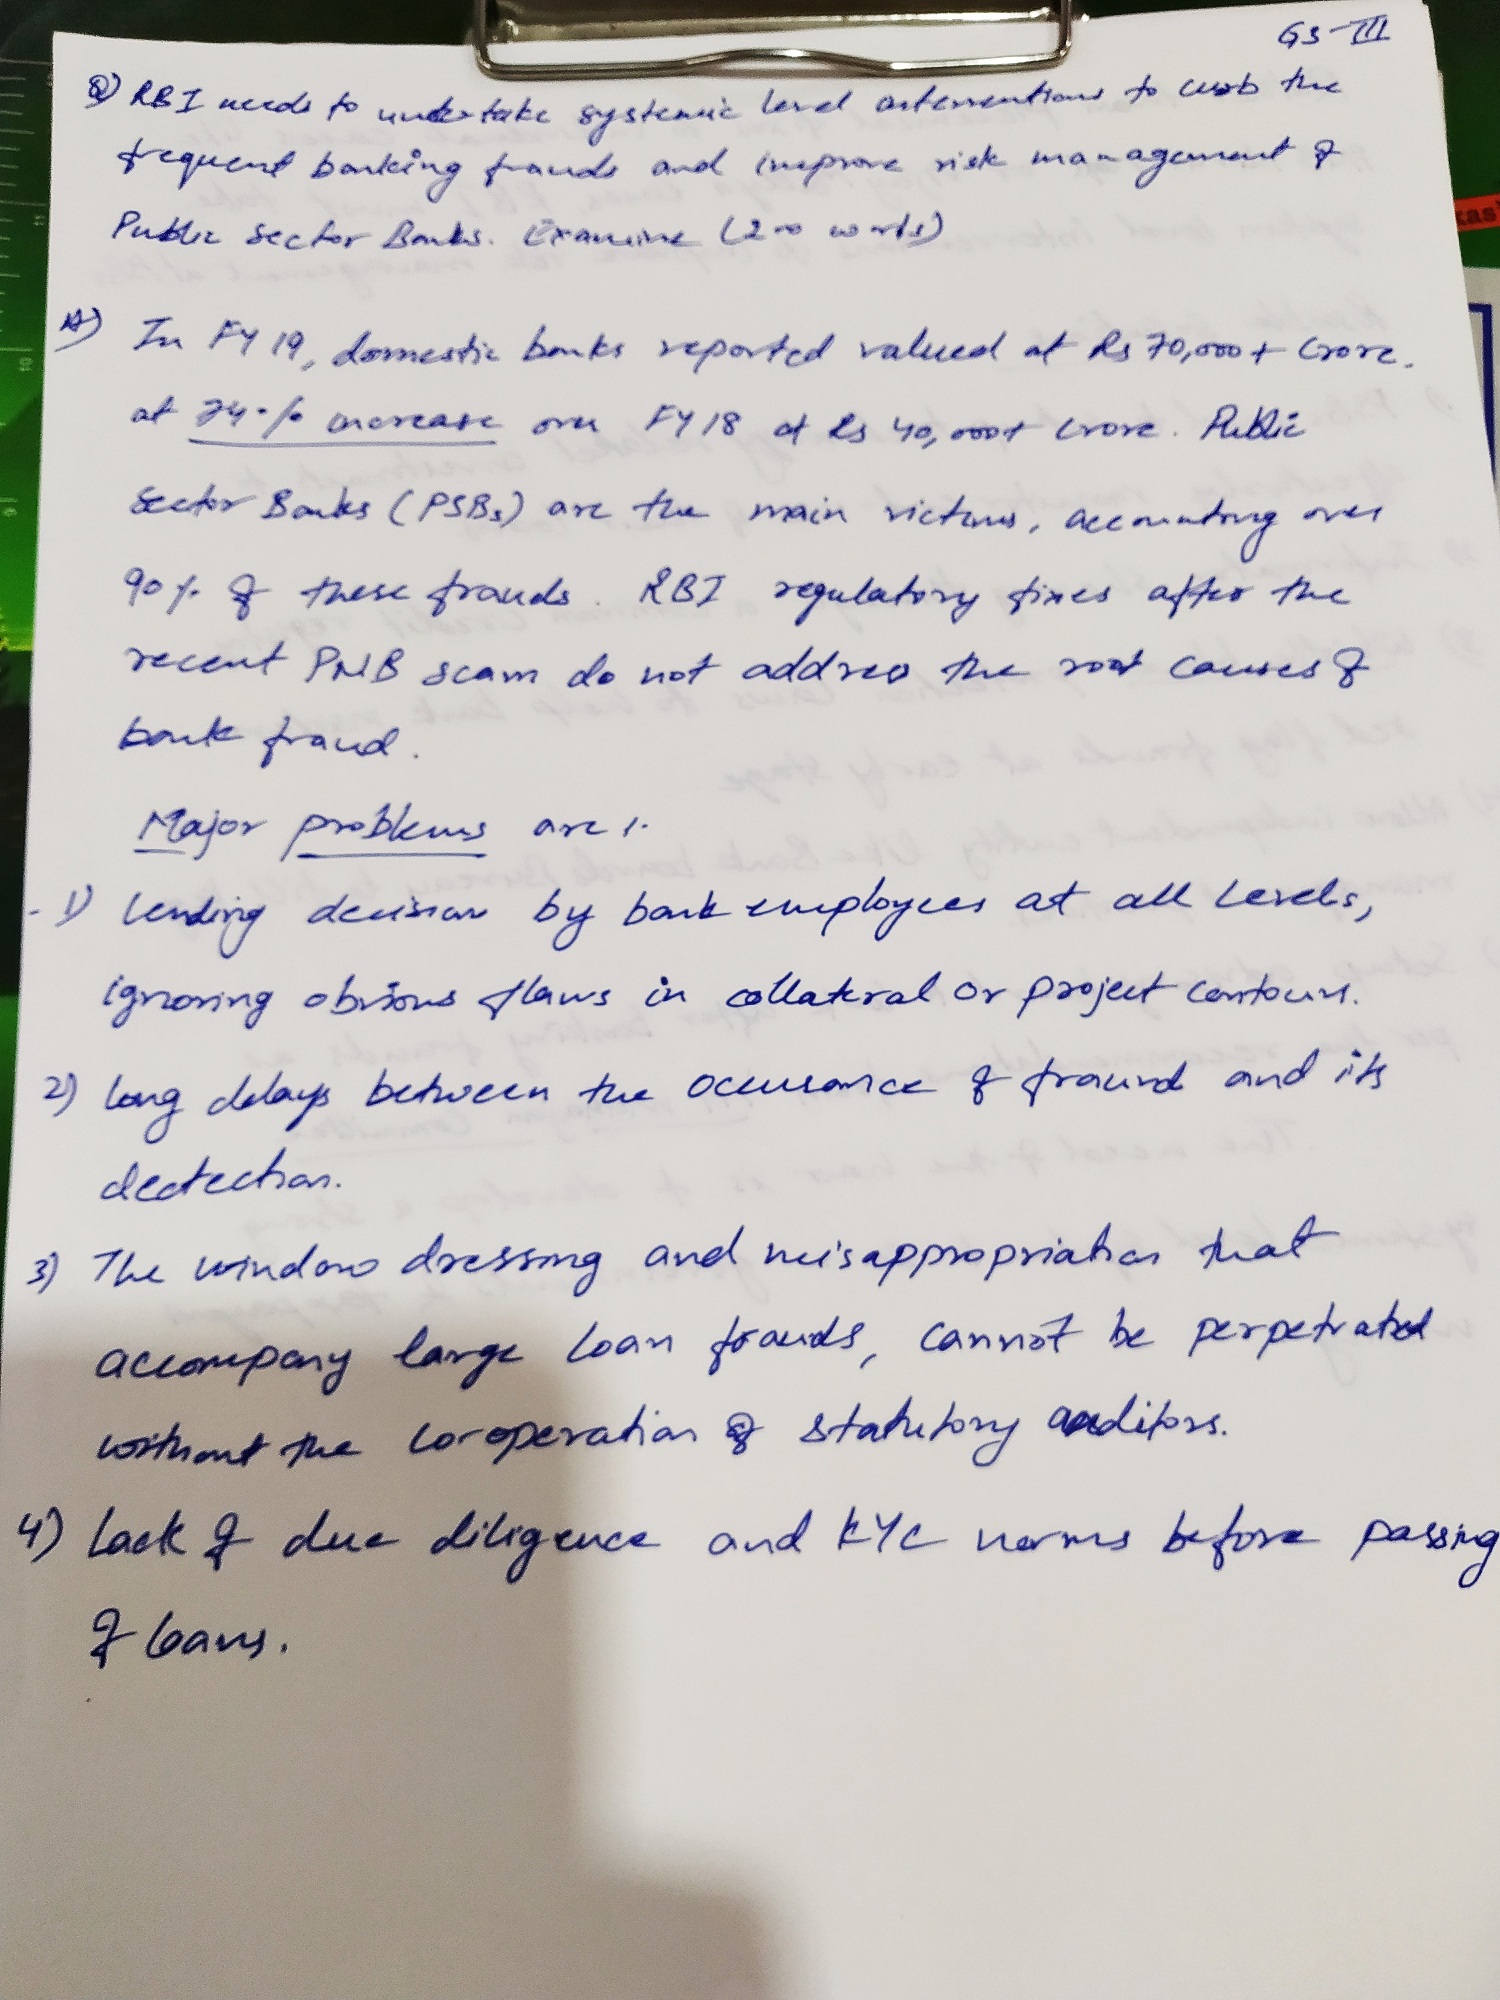 GS-III
Q) RBI needs to undertake systemic level interventions to curb the
frequent banking frauds and improve risk management of
Public Sector Banks. Examine (200 words)
A) In FY 19, domestic banks reported valued at Rs 70,000+ crore.
at 74% increase over FY 18 at Rs 40,000+ crore. Public
Sector Banks (PSBs) are the main victims, accounting over
90% of these frauds. RBI regulatory fixes after the
recent PNB scam do not address the root causes of
bank fraud.
Major problems are :-
1) Lending decision by bank employees at all levels,
ignoring obvious flaws in collateral or project contours.
2) Long delays between the occurance of fraurd and its
dectection.
3) The window dressing and misappropriation that
accompany large loan frauds, cannot be perpetrated
without the co-operation of statutory auditors.
4) Lack of due diligence and KYC norms before passing
of loans.